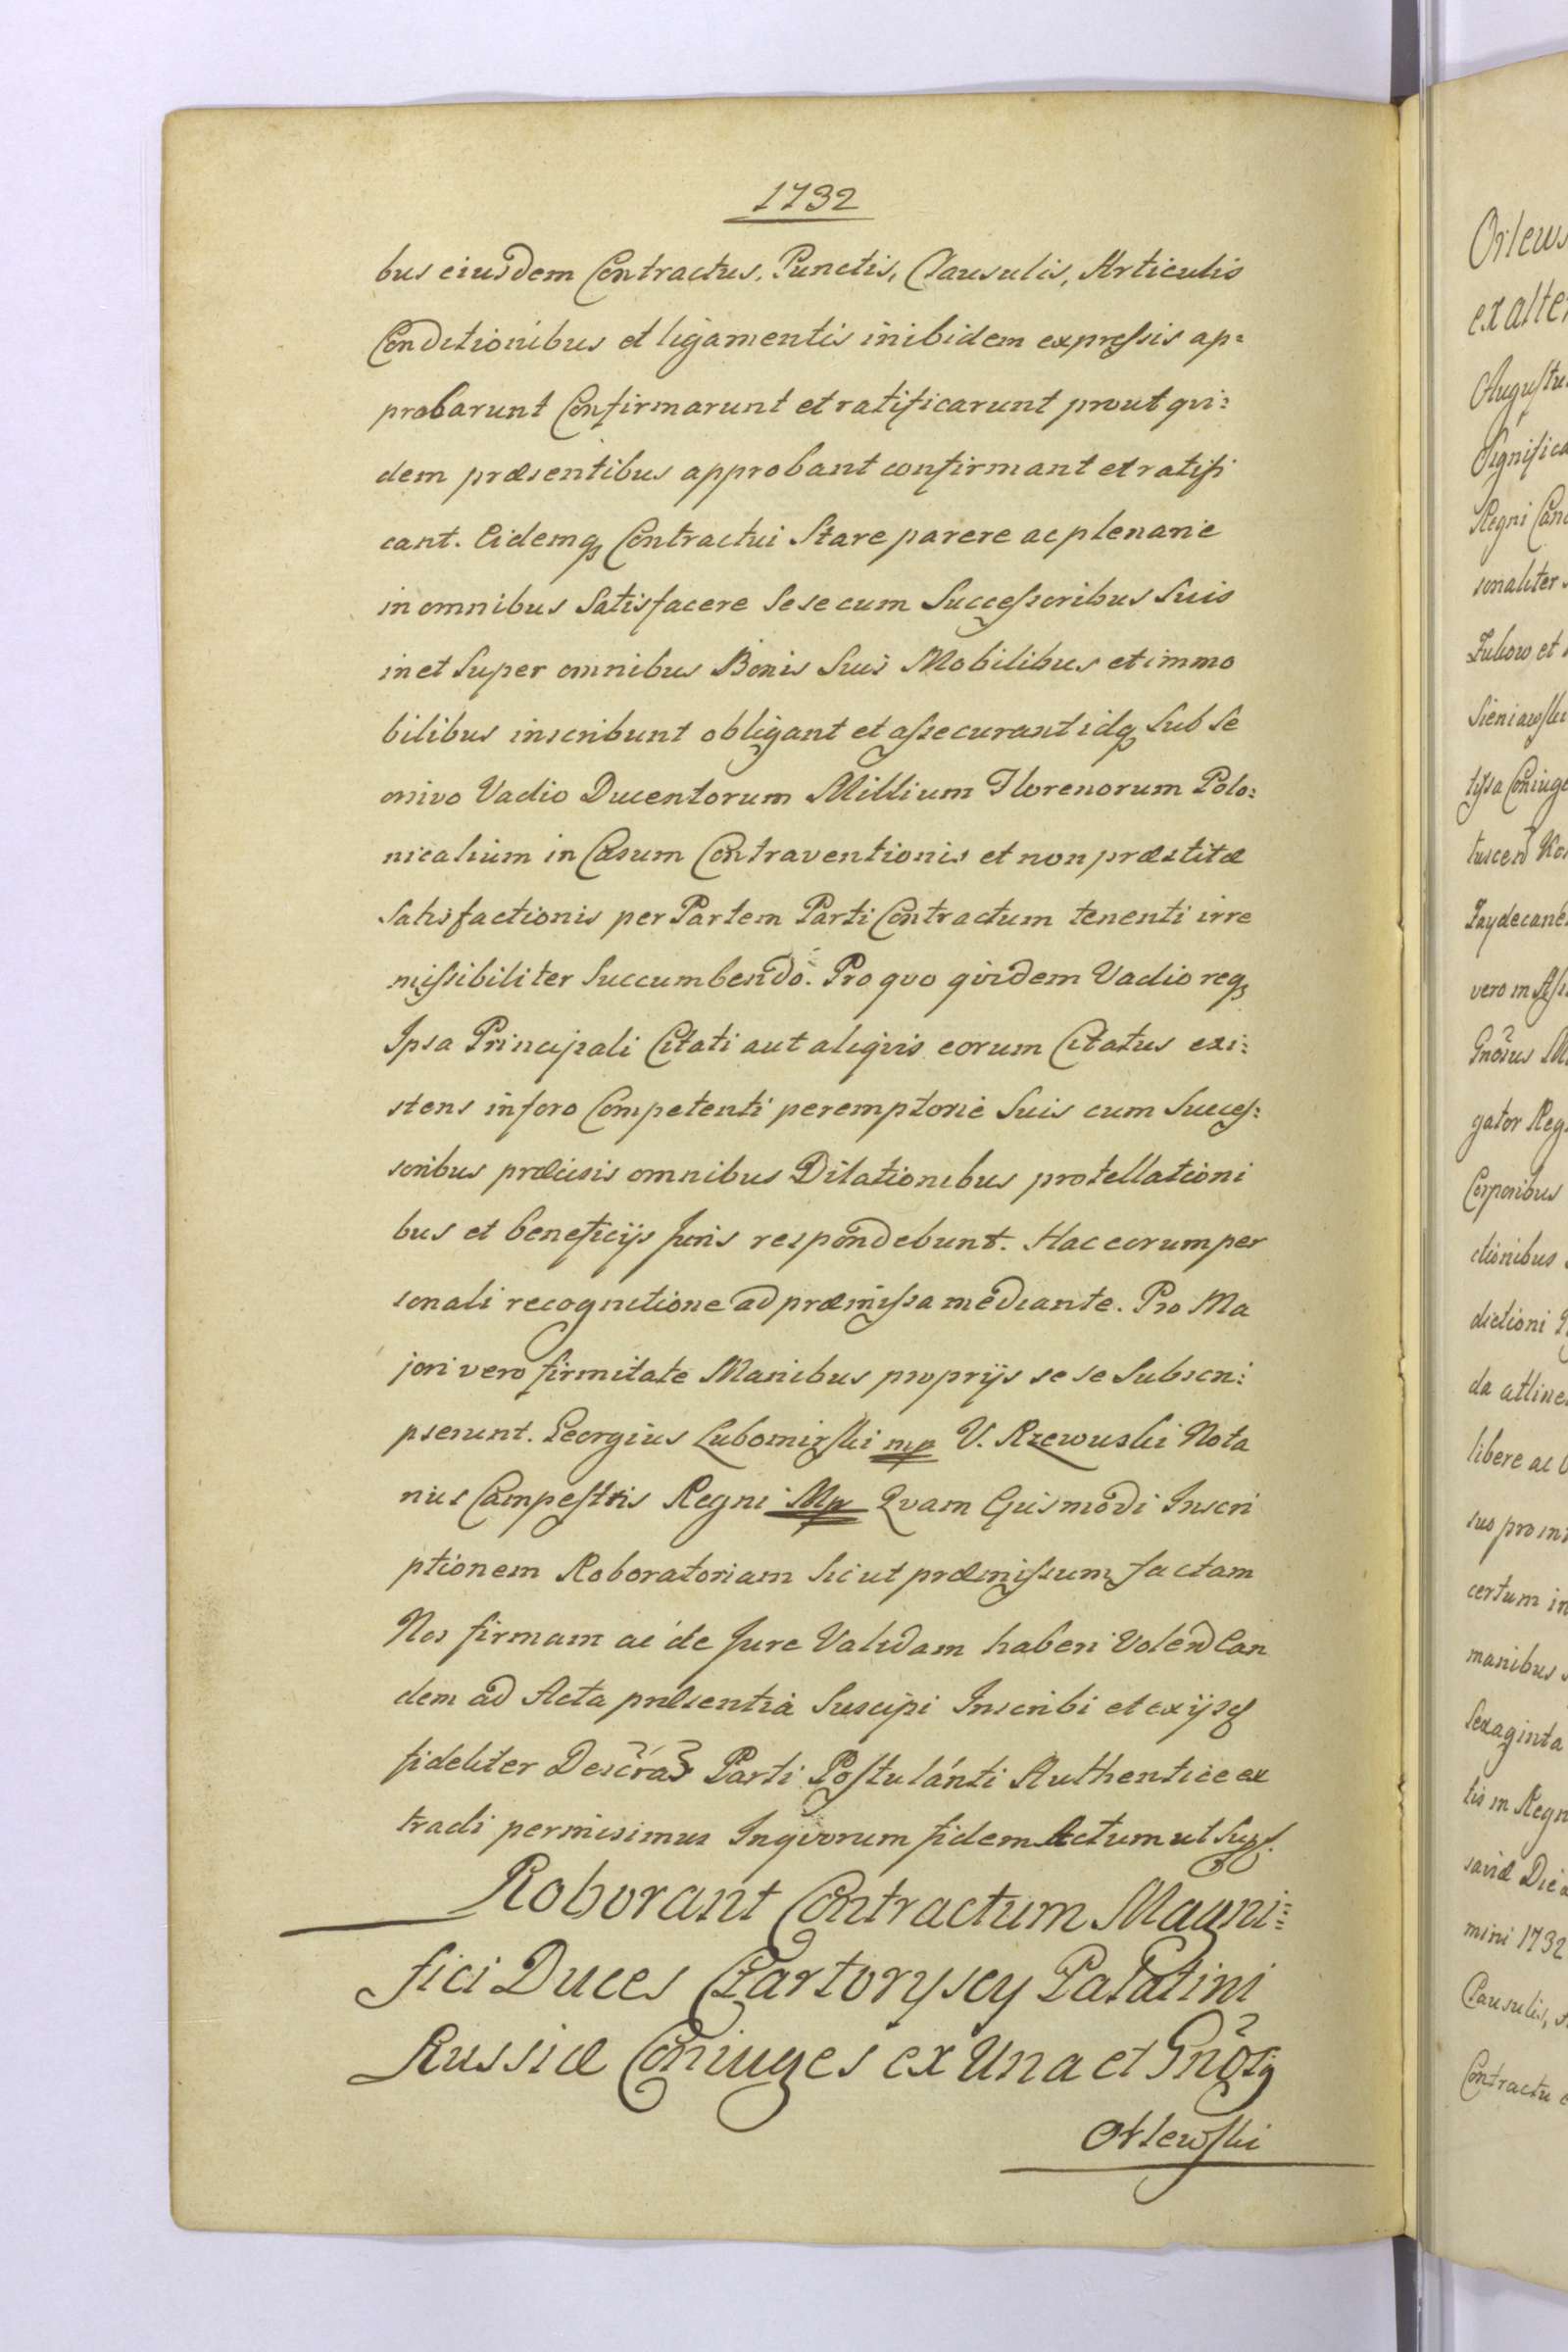 1732
bus eiusdem Contractus, Punctis, Clausulis, Articulis
Conditionibus et ligamentis inibidem expreſsis ap=
probarunt Confirmarunt et ratificarunt prout qvi=
dem præsentibus approbant confirmant et ratifi
cant. Eidemq3 Contractui Stare parere ac plenarie
in omnibus Satisfacere Sese cum Succeſsoribus Suis
in et Super omnibus Bonis Suis Mobilibus et immo
bilibus inscribunt obligant et aſsecurant idq3 Sub Se
orsivo Vadio Ducentorum Millium Florenorum Polo=
nicalium in Casum Contraventionis et non præstitæ
Satisfactionis per Partem Parti Contractum tenenti irre
miſsibiliter Succumbendo. Pro qvo qvidem Vadio req3
Ipsa Principali Citati aut aliqvis eorum Citatus exi=
stens in foro Competenti peremptorie Suis cum Succeſ=
soribus præcisis omnibus Dilationibus protellationi
bus et beneficijs Juris respondebunt. Hac eorum per
sonali recognitione ad præmiſsa mediante. Pro Ma
jori vero firmitate Manibus proprijs se se Subscri=
pserunt. Georgius Lubomirſki mp V. Rzewuski Nota
rius Campeſtris Regni Mp Qvam Ejusmodi Inscri
ptionem Roboratoriam Sicut præmiſsum factam
Nos firmam ac de Jure Validam haberi Volend Ean
dem ad Acta præsentia Suscipi Inscribi et ex ijsd
fideliter Parti Poſtulanti Authentice ex
tradi permisimus Inqvorum fidem Actum ut Supr.
Roborant Contractum Magni=
fici Duces Czartoryscy Palatini
Russiæ Coniuges ex Una et Gnosq
Orlewſki
Orlews
exalter
Auguſtu
Significa
Regni Canc
sonaliter
Zukow et
Sieniawſki
tyſsa Coniuge
Zaydecane
vero in Aſs
Gnosus
gator Reg
Corporibus
ctionibus
dictioni
da attine
libere ac
suo pro in
certum in
manibus
Sexaginta
tis in Regn
mini 1732
Clausulis,
Contractu